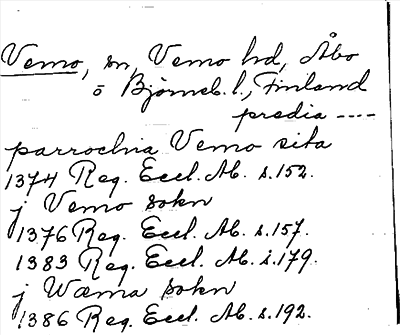 Vemo, sn, Vemo hd, Åbo
o Björneb. l., Finland
predia ----
parrochia Vemo sita
1374 Reg. Eccl. Ab. s. 152.
j Vemo sokn
1376 Reg. Eccl. Ab. s. 157.
1383 Reg. Eccl. Ab. s. 179.
j Wæma sokn
1386 Reg. Eccl. Ab. s. 192.